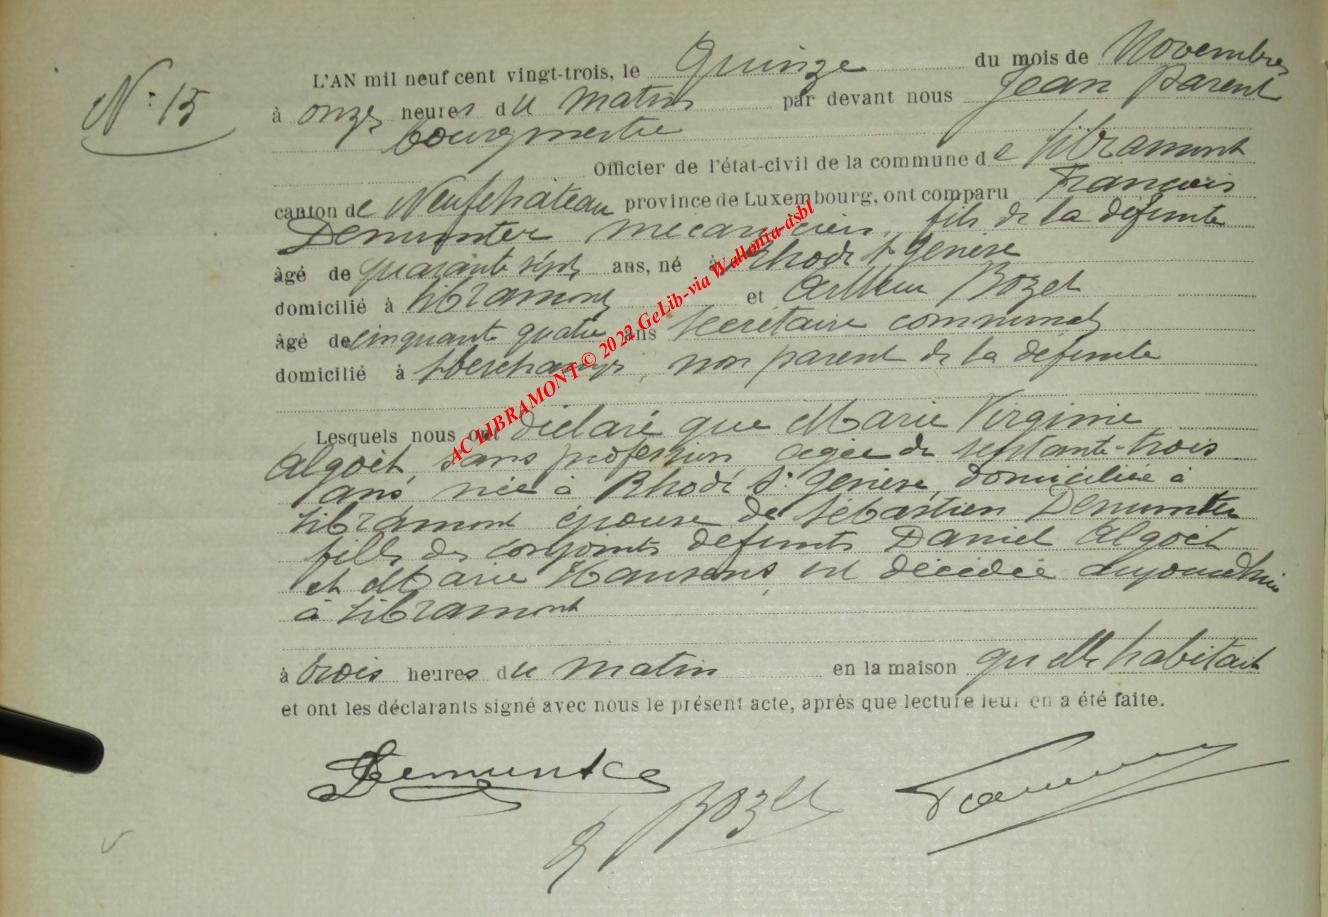 N° 15
L'AN mil neuf cent vingt-trois, le Quinze du mois de Novembre
à onze heures du matin par devant nous Jean Parent
bourgmestre
Officier de l'état-civil de la commune de Libramont
canton de Neufchateau province de Luxembourg, ont comparu François
Demunter mécanicien, fils de la défunte
âgé de quarante sept ans, né à Rhode St Genèse
domicilié à Libramont et Arthur Rozet
âgé de cinquante quatre ans secrétaire communal
domicilié à , non parent de la défunte
Lesquels nous ont déclaré que Marie Virginie
Algoet, sans profession agée de septante-trois
ans, née à Rhode St Genèse, domiciliée à
Libramont épouse de Sébastien Demunter
fille des conjoints défunts Daniel Algoet
et Marie Hansens, est décédée aujourdhui
à Libramont
à trois heures du matin en la maison qu'elle habitait
et ont les déclarants signé avec nous le présent acte, après que lecture leur en a été faite.
Demunter
Rozet
AC LIBRAMONT © 2022 GeLib-via Wallonia-asbl